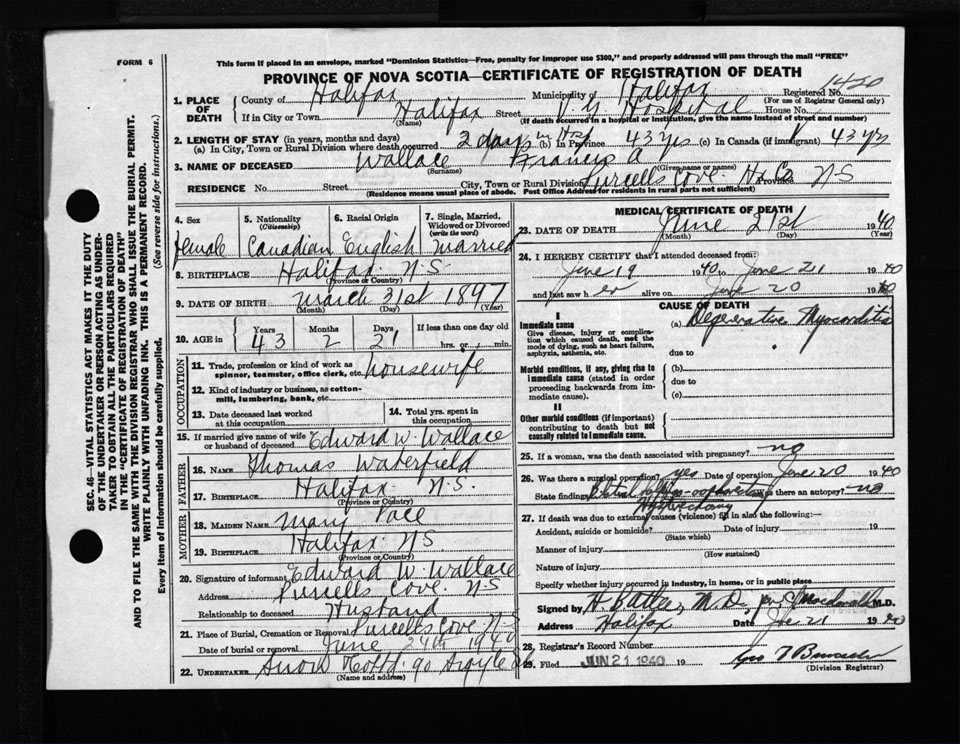 FORM 6
This form if placed in an envelope, marked "Dominion Statistics—Free, penalty for improper use $300," and properly addressed will pass through the mail "FREE"
PROVINCE OF NOVA SCOTIA—CERTIFICATE OF REGISTRATION OF DEATH
1. PLACE OF DEATH
County of Halifax Municipality of Halifax Registered No. 1420
(For use of Registrar General only)
If in City or Town Halifax Street V. G. Hospital House No.
(Name) (If death occurred in a hospital or institution, give the name instead of street and number)
2. LENGTH OF STAY (in years, months and days)
(a) In City, Town or Rural Division where death occurred 2 days in Hosp (b) In Province 43 yrs (c) In Canada (if immigrant) 43 yrs
3. NAME OF DECEASED Wallace Francis A
(Surname) (Given name or names)
RESIDENCE No. Street City, Town or Rural Division Purcells Cove. Hx Co Province N S
(Residence means usual place of abode. Post Office Address for residents in rural parts not sufficient)
4. Sex
female
5. Nationality (Citizenship)
Canadian
6. Racial Origin
English
7. Single, Married, Widowed or Divorced (write the word)
Married
8. BIRTHPLACE Halifax. N-S.
(Province or Country)
9. DATE OF BIRTH March 31st 1897
(Month) (Day) (Year)
10. AGE in
Years Months Days If less than one day old
43 2 21 hrs. or min.
OCCUPATION
11. Trade, profession or kind of work as spinner, teamster, office clerk, etc. housewife
12. Kind of industry or business, as cotton-mill, lumbering, bank, etc.
13. Date deceased last worked at this occupation
14. Total yrs. spent in this occupation
15. If married give name of wife or husband of deceased Edward W. Wallace
FATHER
16. NAME Thomas Waterfield
17. BIRTHPLACE Halifax N.S.
(Province or Country)
MOTHER
18. MAIDEN NAME Mary Pace
19. BIRTHPLACE Halifax N S
(Province or Country)
20. Signature of informant Edward W. Wallace
Address Purcells Cove. N S
Relationship to deceased Husband
21. Place of Burial, Cremation or Removal Purcells Cove. N-S
Date of burial or removal June 24th 1940
22. UNDERTAKER Snow 90 Argyle St
(Name and address)
MEDICAL CERTIFICATE OF DEATH
23. DATE OF DEATH June 21st 1940
(Month) (Day) (Year)
24. I HEREBY CERTIFY that I attended deceased from:
June 19 1940 to June 21 1940
and last saw her alive on June 20 1940
CAUSE OF DEATH
I
Immediate cause
Give disease, injury or complication which caused death, not the mode of dying, such as heart failure, asphyxia, asthenia, etc.
(a) Degenerative Myocarditis
due to
Morbid conditions, if any, giving rise to immediate cause (stated in order proceeding backwards from immediate cause).
(b)
due to
(c)
II
Other morbid conditions (if important) contributing to death but not causally related to immediate cause.
25. If a woman, was the death associated with pregnancy? no
26. Was there a surgical operation? yes Date of operation June 20 1940
State findings Hysterectomy Was there an autopsy? no
27. If death was due to external causes (violence) fill in also the following:—
Accident, suicide or homicide? Date of injury 19
(State which)
Manner of injury
(How sustained)
Nature of injury
Specify whether injury occurred in industry, in home, or in public place
Signed by H. B. Atlee, M.D. M.D.
Address Halifax Date June 21 1940
28. Registrar's Record Number
29. Filed JUN 21 1940 19
(Division Registrar)
SEC. 46—VITAL STATISTICS ACT MAKES IT THE DUTY
OF THE UNDERTAKER OR PERSON ACTING AS UNDER-
TAKER TO OBTAIN ALL THE PARTICULARS REQUIRED
IN THE "CERTIFICATE OF REGISTRATION OF DEATH"
AND TO FILE THE SAME WITH THE DIVISION REGISTRAR WHO SHALL ISSUE THE BURIAL PERMIT.
WRITE PLAINLY WITH UNFADING INK. THIS IS A PERMANENT RECORD.
Every item of Information should be carefully supplied. (See reverse side for instructions.)